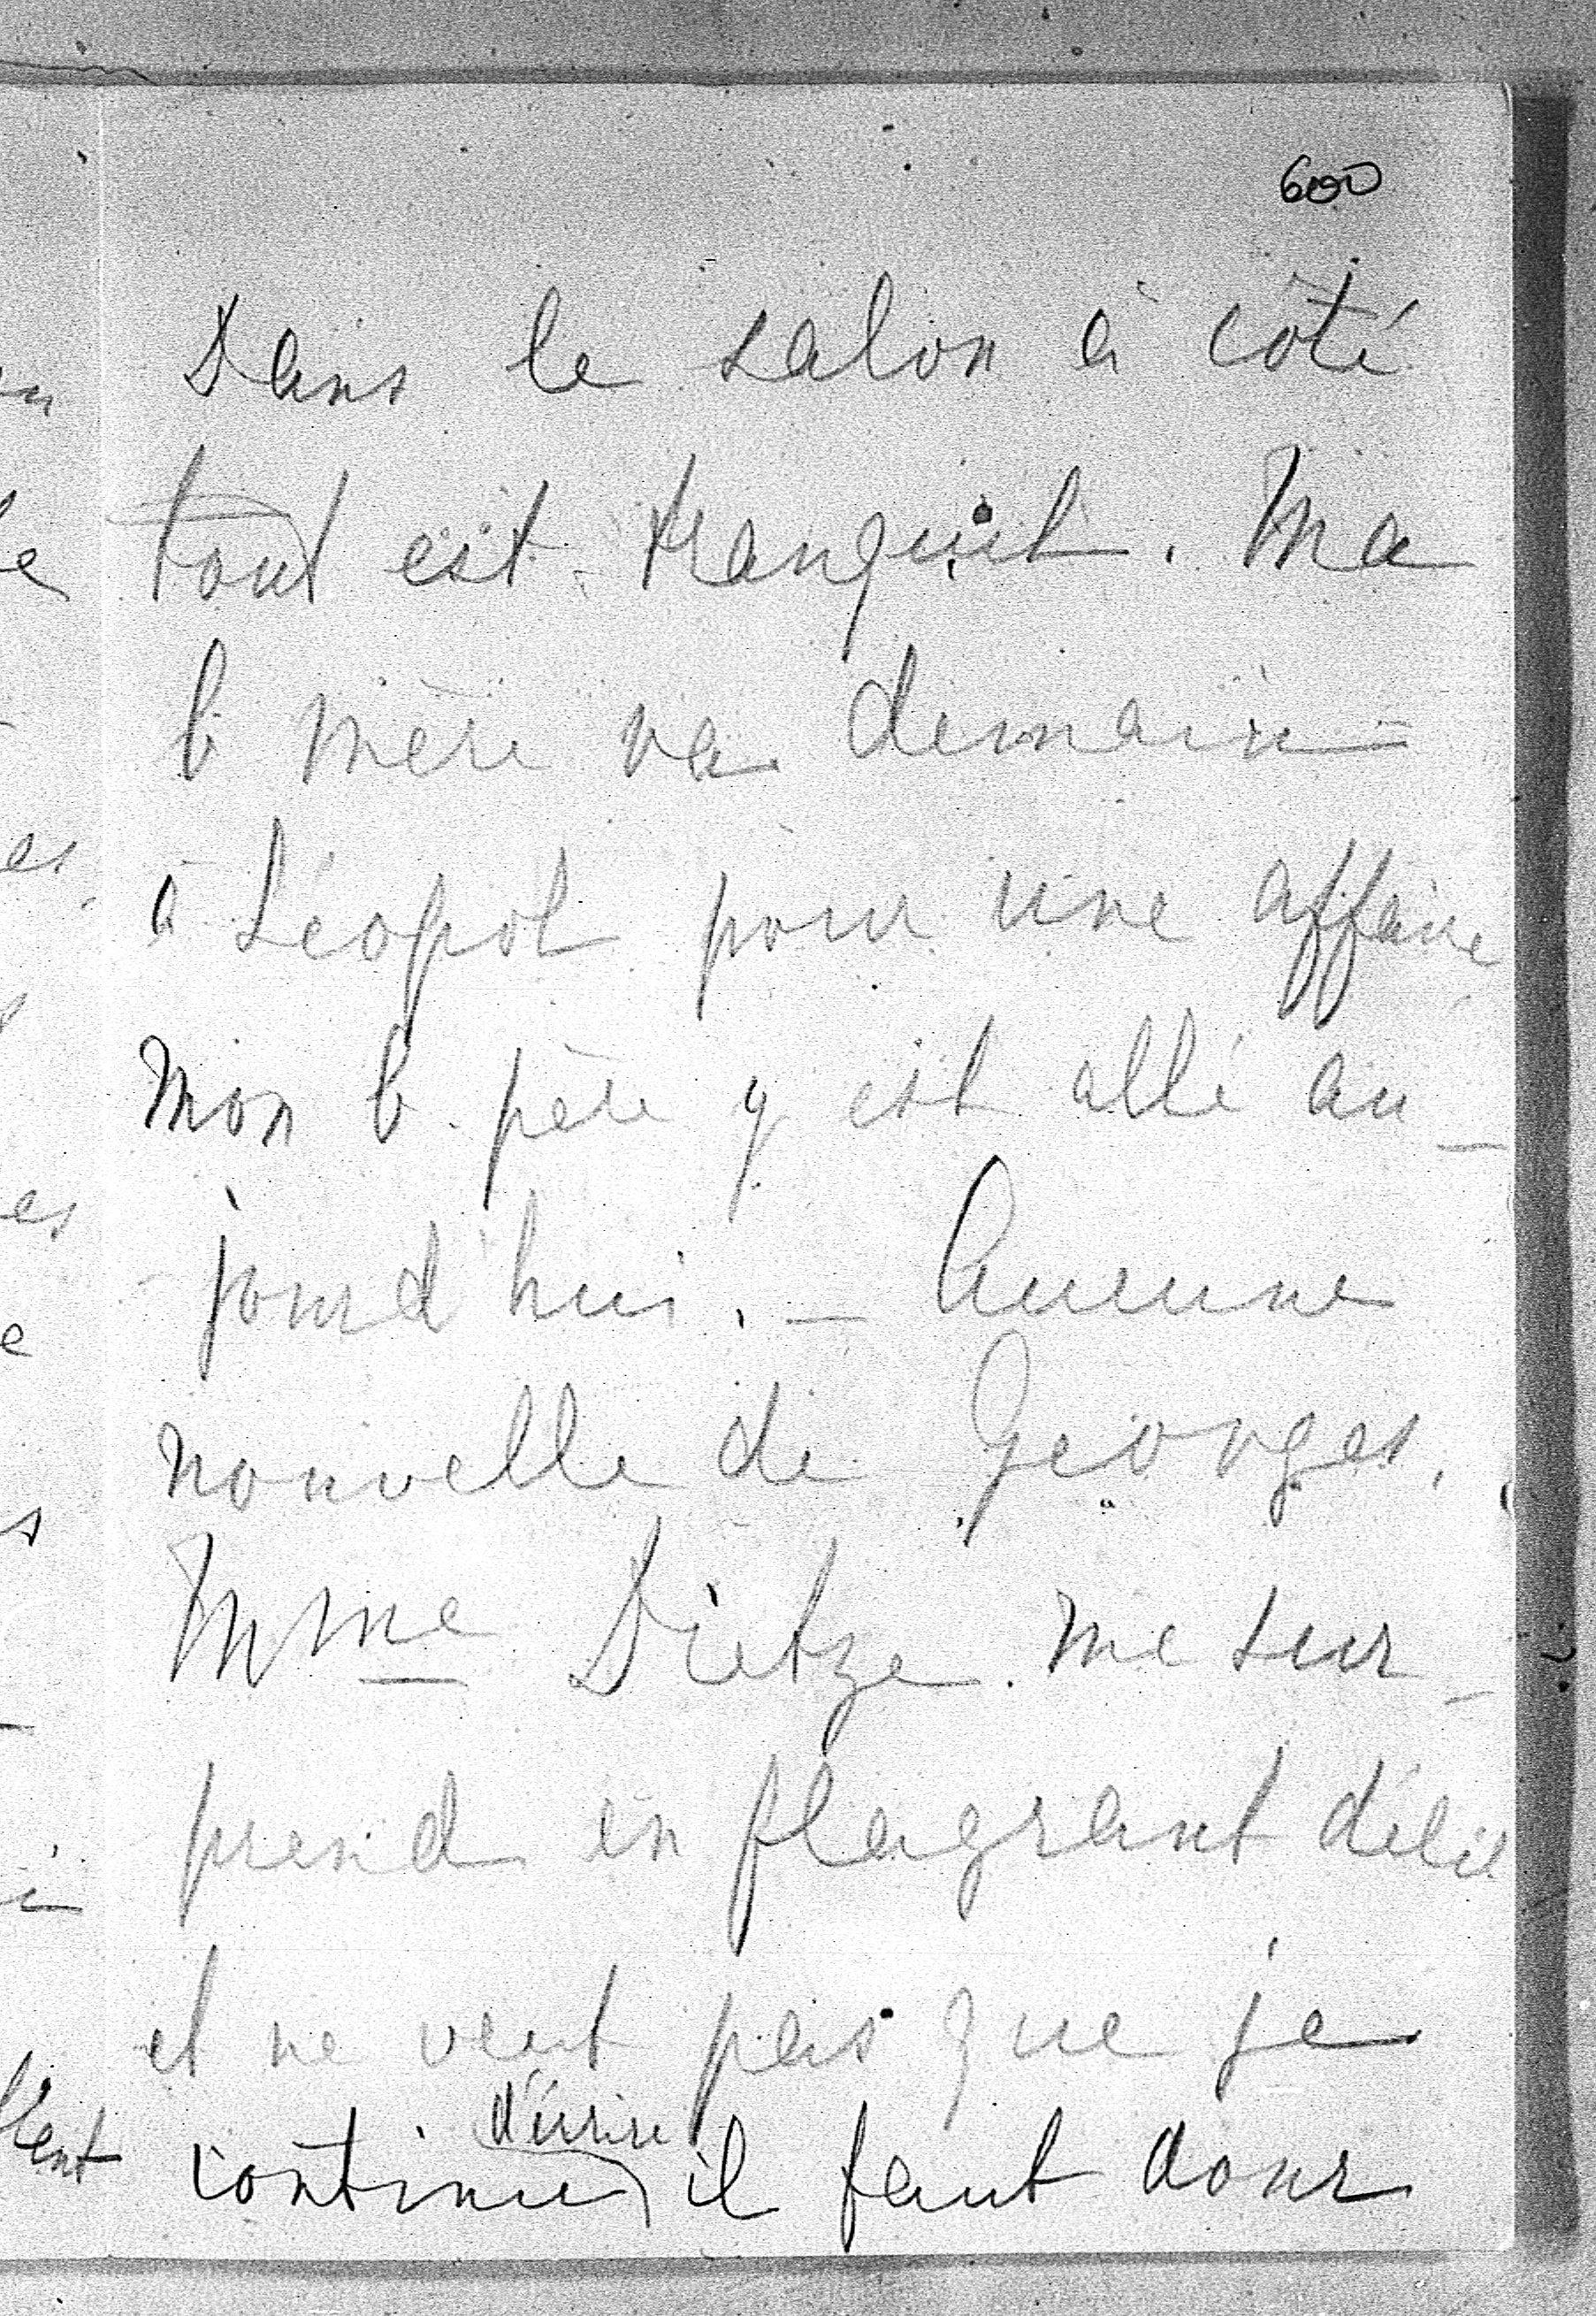 600
Dans le salon à côté
tout est tranquil. Ma
b mère va demain
à Léopol pour une affaire
mon b. père y est allé au-
jourd'hui. – Aucune
nouvelle de Georges.
Mme Dietze me sur-
prend en flagrant délit
et ne veut pas que je
d'écrire
continue il faut donc